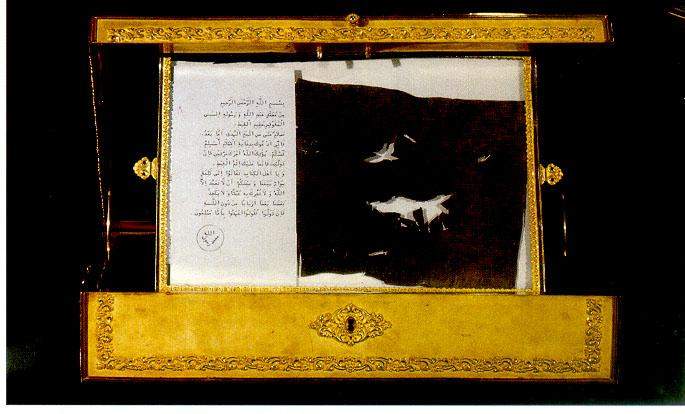 بسم الله الرحمن الرحيم
من محمد عبد الله و رسوله إلى
المقوقس عظيم القبط
سلام على من اتبع الهدى أما بعد
فإني أدعوك بدعاية الإسلام أسلم
تسلم يؤتك الله أجرك مرتين فإن
توليت فإنما عليك إثم القبط
و يا أهل الكتاب تعالوا إلى كلمة
سواء بيننا و بينكم أن لا نعبد إلا
الله و لا نشرك به شيئا و لا يتخذ
بعضنا بعضا أربابا من دون الله
فإن تولوا فقولوا اشهدوا بأنا مسلمون
الله
رسول
محمد